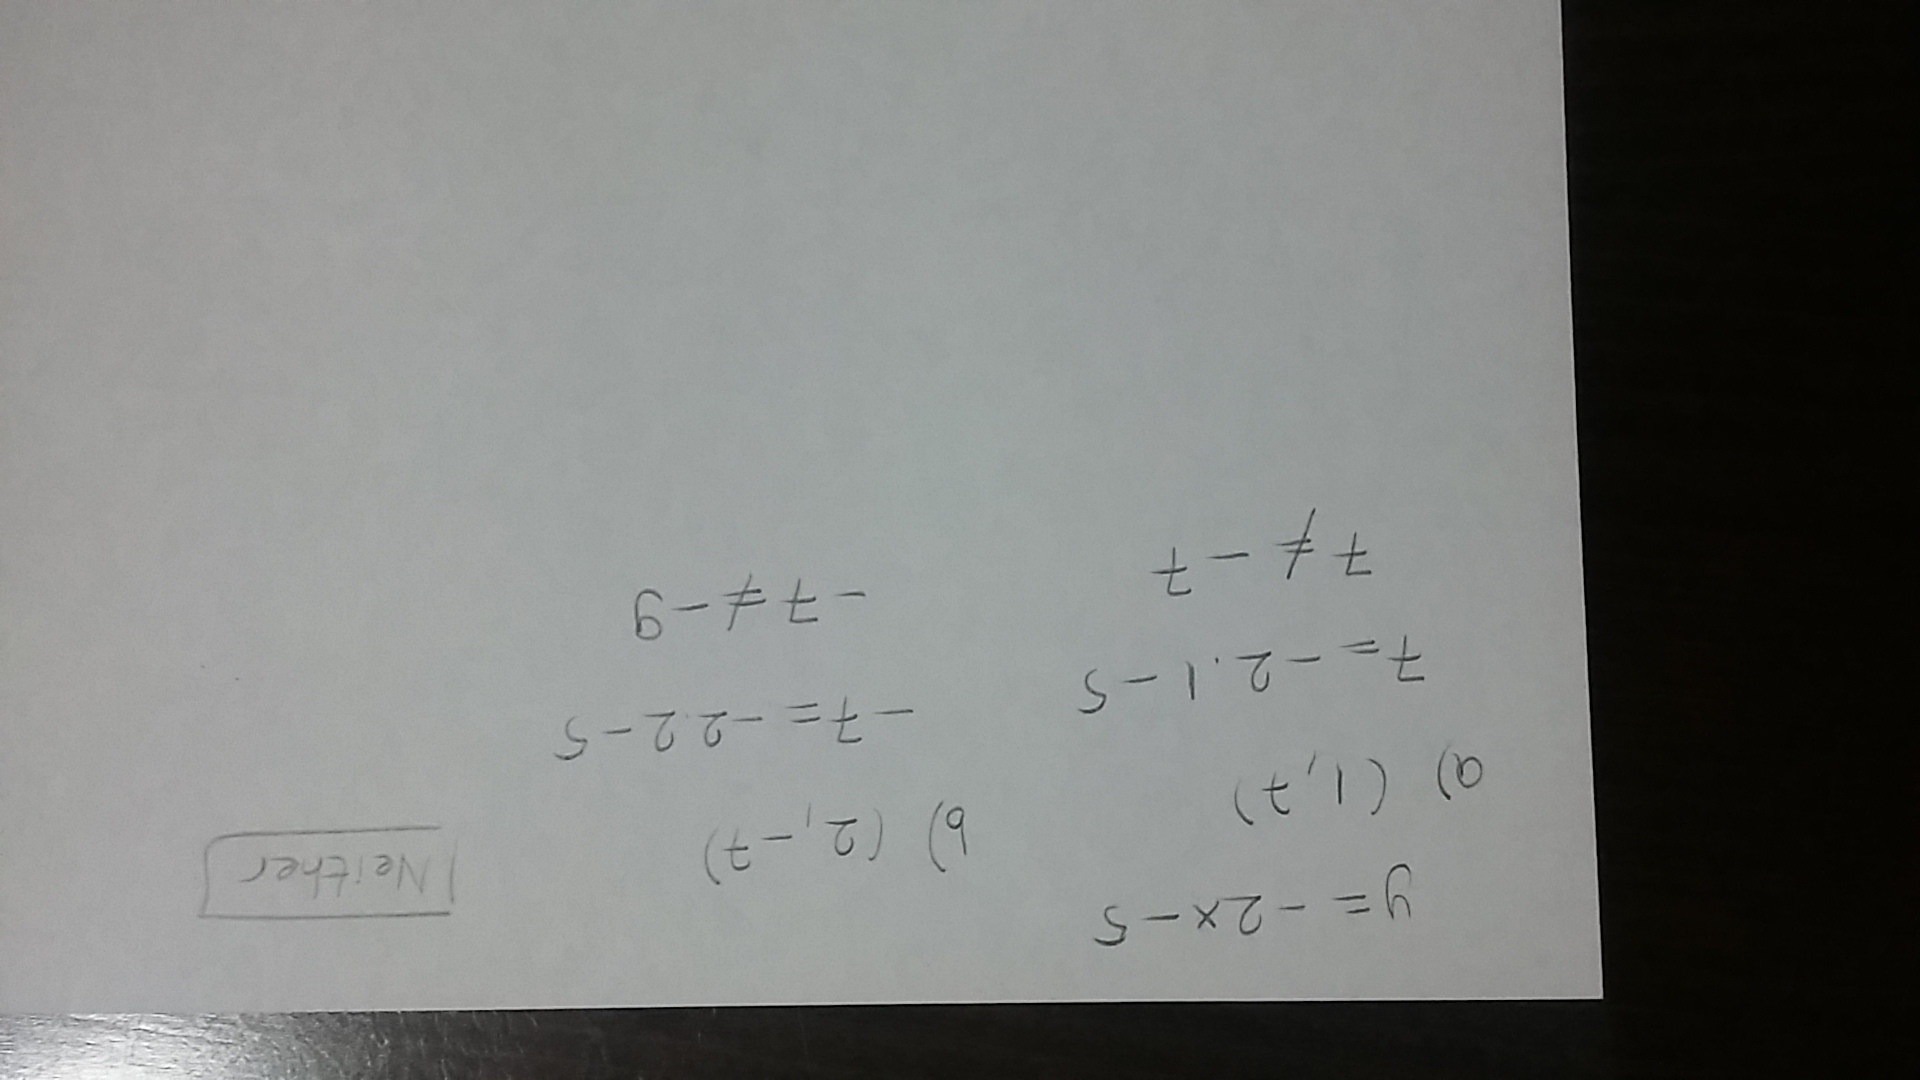 y = -2x - 5
a) (1, 7)
7 = -2 . 1 - 5
7 ≠ -7
b) (2, -7)
-7 = -2.2 - 5
-7 ≠ -9
Neither